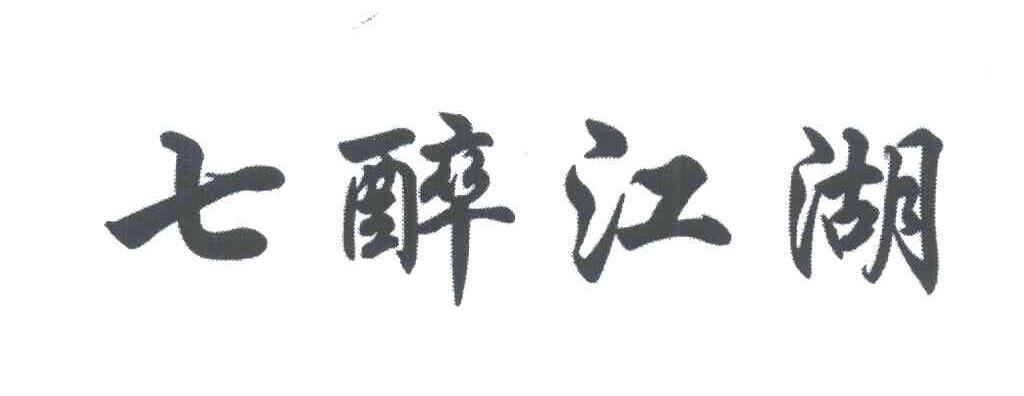 七醉江湖